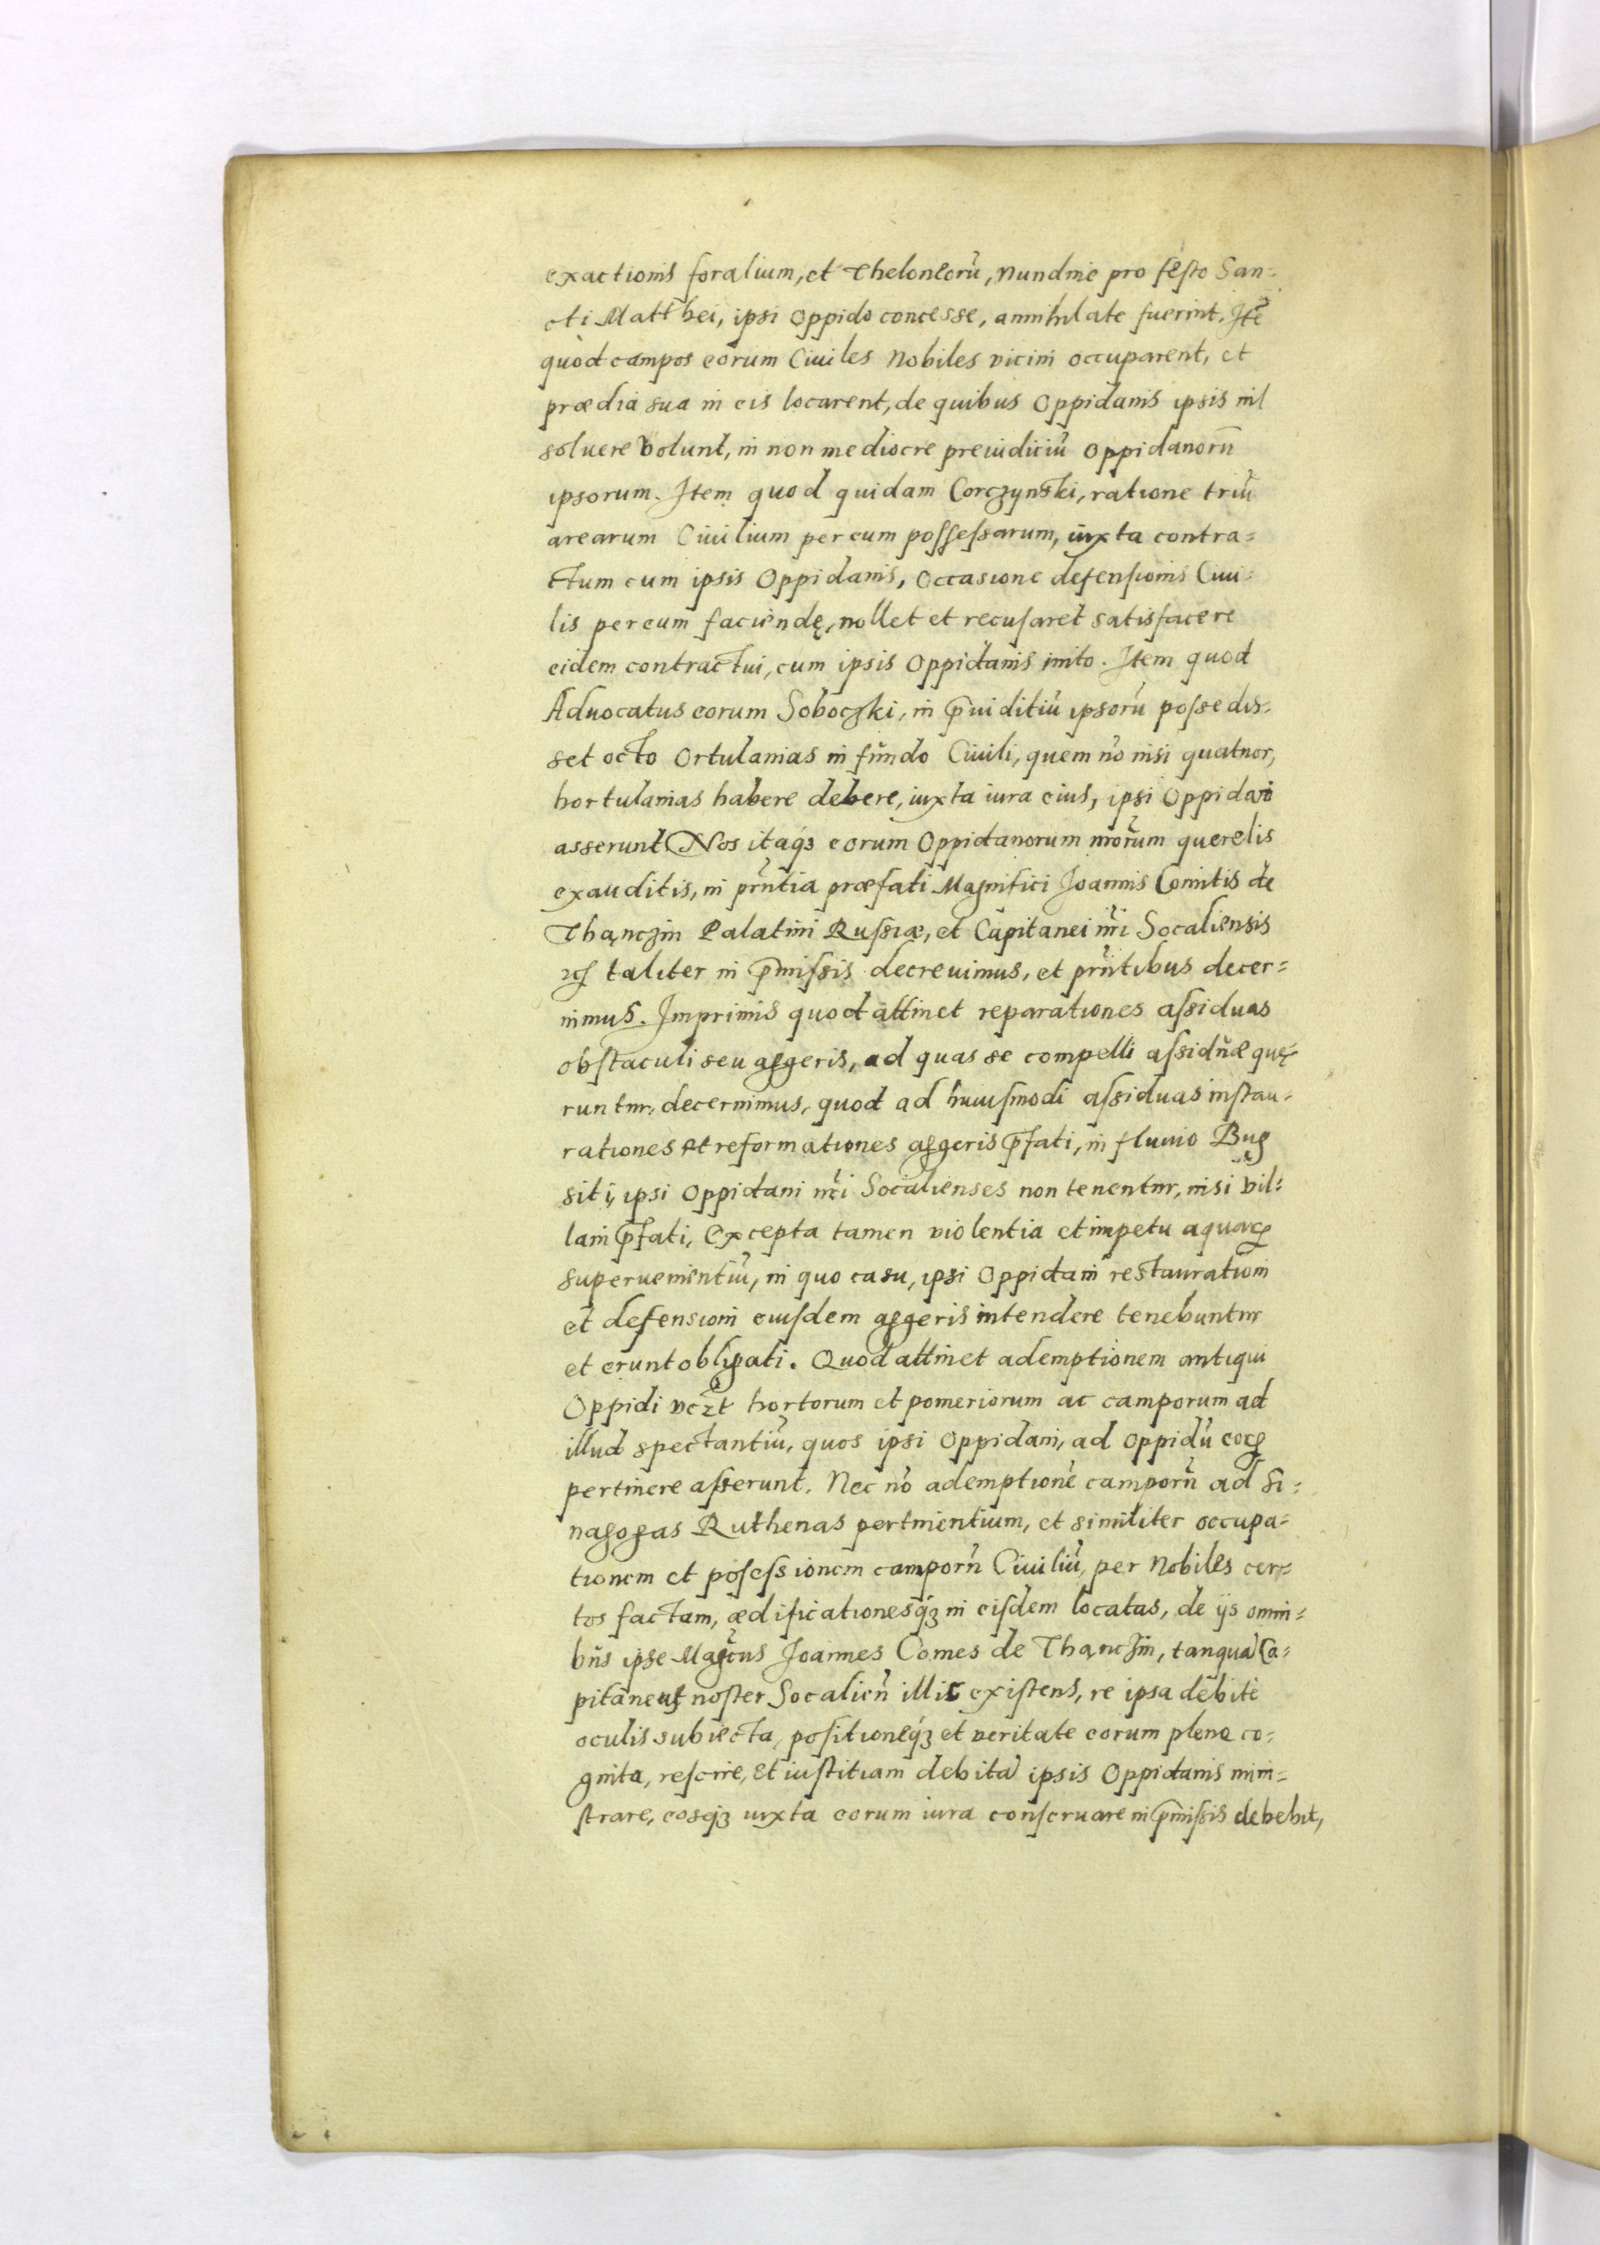 exactionis foralium, et theloneorũ, nundine pro festo San-
cti Matthei, ipsi Oppido concesse, annihilate fuerint. Itẽ
quod campos eorum Ciuiles Nobiles vicini occuparent, et
prædia sua in eis locarent, de quibus Oppidanis ipsis nil
soluere volunt, in non mediocre preiudiciũ Oppidanorũ
ipsorum. Item quod quidam Corczynski, ratione triũ
arearum Ciuilium per eum possessarum, iuxta contra-
ctum cum ipsis Oppidanis, occasione defensionis Ciui-
lis per eum faciendę, nollet et recusaret satisfacere
eidem contractui, cum ipsis Oppidanis inito. Item quod
Aduocatus eorum Soboczki, in p̃iuditiũ ipsorũ possedis-
set octo ortulanias in fundo Ciuili, quem nõ nisi quatuor,
hortulanias habere debere, iuxta iura eius, ipsi Oppidani
asserunt Nos itaq3 eorum Oppidanorum nrõrum querelis
exauditis, in prñtia præfati Magnifici Joannis Comitis de
Thąnczin Palatini Russiæ, et Capitanei nr̃i Socaliensis
taliter in p̃missis decreuimus, et prñtibus decer-
nimus. Imprimis quod attinet reparationes assiduas
obstaculi seu aggeris, ad quas se compelli assiduæ quę-
runtur, decernimus, quod ad huiusmodi assiduas instau-
rationes et reformationes aggeris p̃fati, in fluuio Bug
siti, ipsi Oppidani nr̃i Socalienses non tenentur, nisi vil-
lani p̃fati, Excepta tamen violentia et impetu aquarꝝ
superuenientiũ, in quo casu, ipsi Oppidani restaurationi
et defensioni eiusdem aggeris intendere tenebuntur
et erunt obligati. Quod attinet ademptionem antiqui
Oppidi vcz̃t hortorum et pomeriorum ac camporum ad
illud spectantiũ, quos ipsi Oppidani, ad Oppidũ eorꝝ
pertinere asserunt. Nec nõ ademptionẽ camporũ ad Si-
nagogas Ruthenas pertinentium, et similiter occupa-
tionem et posessionem camporũ Ciuiliũ, per Nobiles cer-
tos factam, ædificationesq3 in eisdem locatas, de ijs omni-
bus ipse Mag̃cus Joannes Comes de Thąnczin, tanquã Ca-
pitaneus noster Socalieñ illic existens, re ipsa debite
oculis subiecta, positioneq3 et veritate eorum plene co-
gnita, rescire, et iustitiam debitã ipsis Oppidanis mini-
strare, eosq3 iuxta eorum iura conseruare in p̃missis debebit,